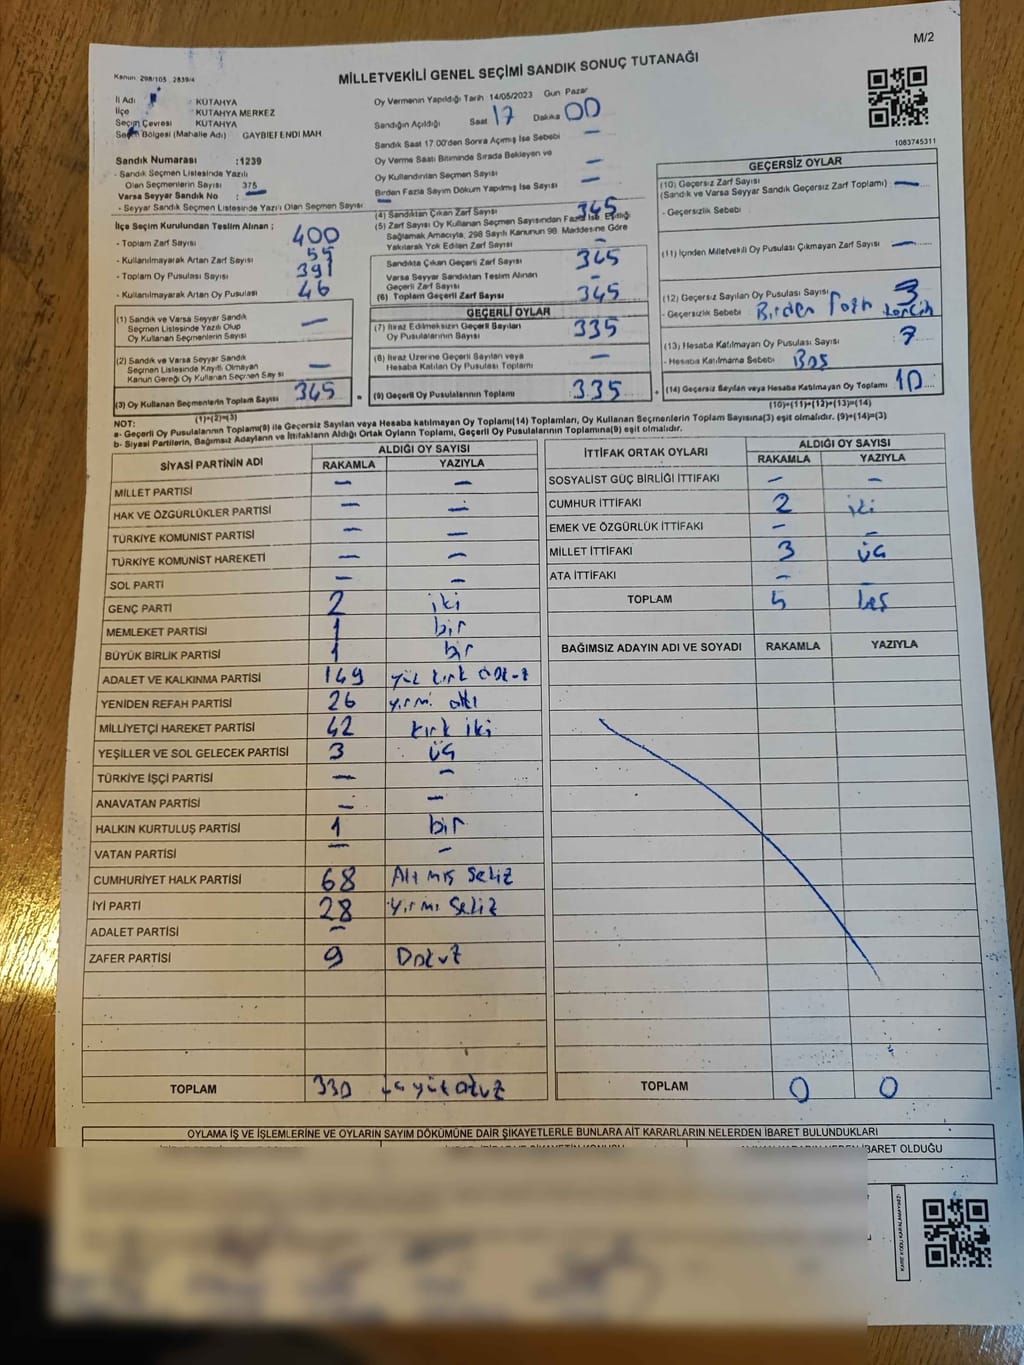 M/2
Kanun: 298/105 , 2839/4
MİLLETVEKİLİ GENEL SEÇİMİ SANDIK SONUÇ TUTANAĞI
İl Adı : KÜTAHYA
İlçe : KÜTAHYA MERKEZ
Seçim Çevresi : KÜTAHYA
Seçim Bölgesi (Mahalle Adı) GAYBİEFENDİ MAH
Sandık Numarası :1239
- Sandık Seçmen Listesinde Yazılı
Olan Seçmenlerin Sayısı 375
Varsa Seyyar Sandık No : –
- Seyyar Sandık Seçmen Listesinde Yazılı Olan Seçmen Sayısı –
İlçe Seçim Kurulundan Teslim Alınan ;
- Toplam Zarf Sayısı 400
- Kullanılmayarak Artan Zarf Sayısı 55
- Toplam Oy Pusulası Sayısı 391
- Kullanılmayarak Artan Oy Pusulası 46
(1) Sandık ve Varsa Seyyar Sandık
Seçmen Listesinde Yazılı Olup
Oy Kullanan Seçmenlerin Sayısı –
(2) Sandık ve Varsa Seyyar Sandık
Seçmen Listesinde Kayıtlı Olmayan
Kanun Gereği Oy Kullanan Seçmen Sayısı –
(3) Oy Kullanan Seçmenlerin Toplam Sayısı 345
(1)+(2)=(3)
Oy Vermenin Yapıldığı Tarih 14/05/2023 Gün Pazar
Sandığın Açıldığı Saat 17 Dakika 00
Sandık Saat 17.00'den Sonra Açılmış İse Sebebi –
Oy Verme Saati Bitiminde Sırada Bekleyen ve
Oy Kullandırılan Seçmen Sayısı –
Birden Fazla Sayım Döküm Yapılmış İse Sayısı –
(4) Sandıktan Çıkan Zarf Sayısı 345
(5) Zarf Sayısı Oy Kullanan Seçmen Sayısından Fazla İse, Eşitliği
Sağlamak Amacıyla, 298 Sayılı Kanunun 98. Maddesine Göre
Yakılarak Yok Edilen Zarf Sayısı –
Sandıkta Çıkan Geçerli Zarf Sayısı 345
Varsa Seyyar Sandıktan Teslim Alınan
Geçerli Zarf Sayısı –
(6) Toplam Geçerli Zarf Sayısı 345
GEÇERLİ OYLAR
(7) İtiraz Edilmeksizin Geçerli Sayılan
Oy Pusulalarının Sayısı 335
(8) İtiraz Üzerine Geçerli Sayılan veya
Hesaba Katılan Oy Pusulası Toplamı –
(9) Geçerli Oy Pusulalarının Toplamı 335
1083745311
GEÇERSİZ OYLAR
(10) Geçersiz Zarf Sayısı
(Sandık ve Varsa Seyyar Sandık Geçersiz Zarf Toplamı) –
- Geçersizlik Sebebi
(11) İçinden Milletvekili Oy Pusulası Çıkmayan Zarf Sayısı –
(12) Geçersiz Sayılan Oy Pusulası Sayısı 3
- Geçersizlik Sebebi Birden
(13) Hesaba Katılmayan Oy Pusulası Sayısı 7
- Hesaba Katılmama Sebebi Boş
(14) Geçersiz Sayılan veya Hesaba Katılmayan Oy Toplamı 10
(10)+(11)+(12)+(13)=(14)
NOT:
a- Geçerli Oy Pusulalarının Toplamı(9) ile Geçersiz Sayılan veya Hesaba katılmayan Oy Toplamı(14) Toplamları, Oy Kullanan Seçmenlerin Toplam Sayısına(3) eşit olmalıdır. (9)+(14)=(3)
b- Siyasi Partilerin, Bağımsız Adayların ve İttifakların Aldığı Ortak Oyların Toplamı, Geçerli Oy Pusulalarının Toplamına(9) eşit olmalıdır.
SİYASİ PARTİNİN ADI ALDIĞI OY SAYISI
RAKAMLA YAZIYLA
MİLLET PARTİSİ – –
HAK VE ÖZGÜRLÜKLER PARTİSİ – –
TÜRKİYE KOMÜNİST PARTİSİ – –
TÜRKİYE KOMÜNİST HAREKETİ – –
SOL PARTİ – –
GENÇ PARTİ 2 iki
MEMLEKET PARTİSİ 1 bir
BÜYÜK BİRLİK PARTİSİ 1 bir
ADALET VE KALKINMA PARTİSİ 149 yüz kırk dokuz
YENİDEN REFAH PARTİSİ 26 yirmi altı
MİLLİYETÇİ HAREKET PARTİSİ 42 kırk iki
YEŞİLLER VE SOL GELECEK PARTİSİ 3 üç
TÜRKİYE İŞÇİ PARTİSİ – –
ANAVATAN PARTİSİ – –
HALKIN KURTULUŞ PARTİSİ 1 bir
VATAN PARTİSİ – –
CUMHURİYET HALK PARTİSİ 68 Altmış Sekiz
İYİ PARTİ 28 Yirmi Sekiz
ADALET PARTİSİ –
ZAFER PARTİSİ 9 Dokuz
TOPLAM 330 üçyüz otuz
İTTİFAK ORTAK OYLARI ALDIĞI OY SAYISI
RAKAMLA YAZIYLA
SOSYALİST GÜÇ BİRLİĞİ İTTİFAKI – –
CUMHUR İTTİFAKI 2 iki
EMEK VE ÖZGÜRLÜK İTTİFAKI – –
MİLLET İTTİFAKI 3 üç
ATA İTTİFAKI – –
TOPLAM 5 beş
BAĞIMSIZ ADAYIN ADI VE SOYADI RAKAMLA YAZIYLA
TOPLAM 0 0
OYLAMA İŞ VE İŞLEMLERİNE VE OYLARIN SAYIM DÖKÜMÜNE DAİR ŞİKAYETLERLE BUNLARA AİT KARARLARIN NELERDEN İBARET BULUNDUKLARI
İBARET OLDUĞU
KARE KODU KARALAMAYINIZ!